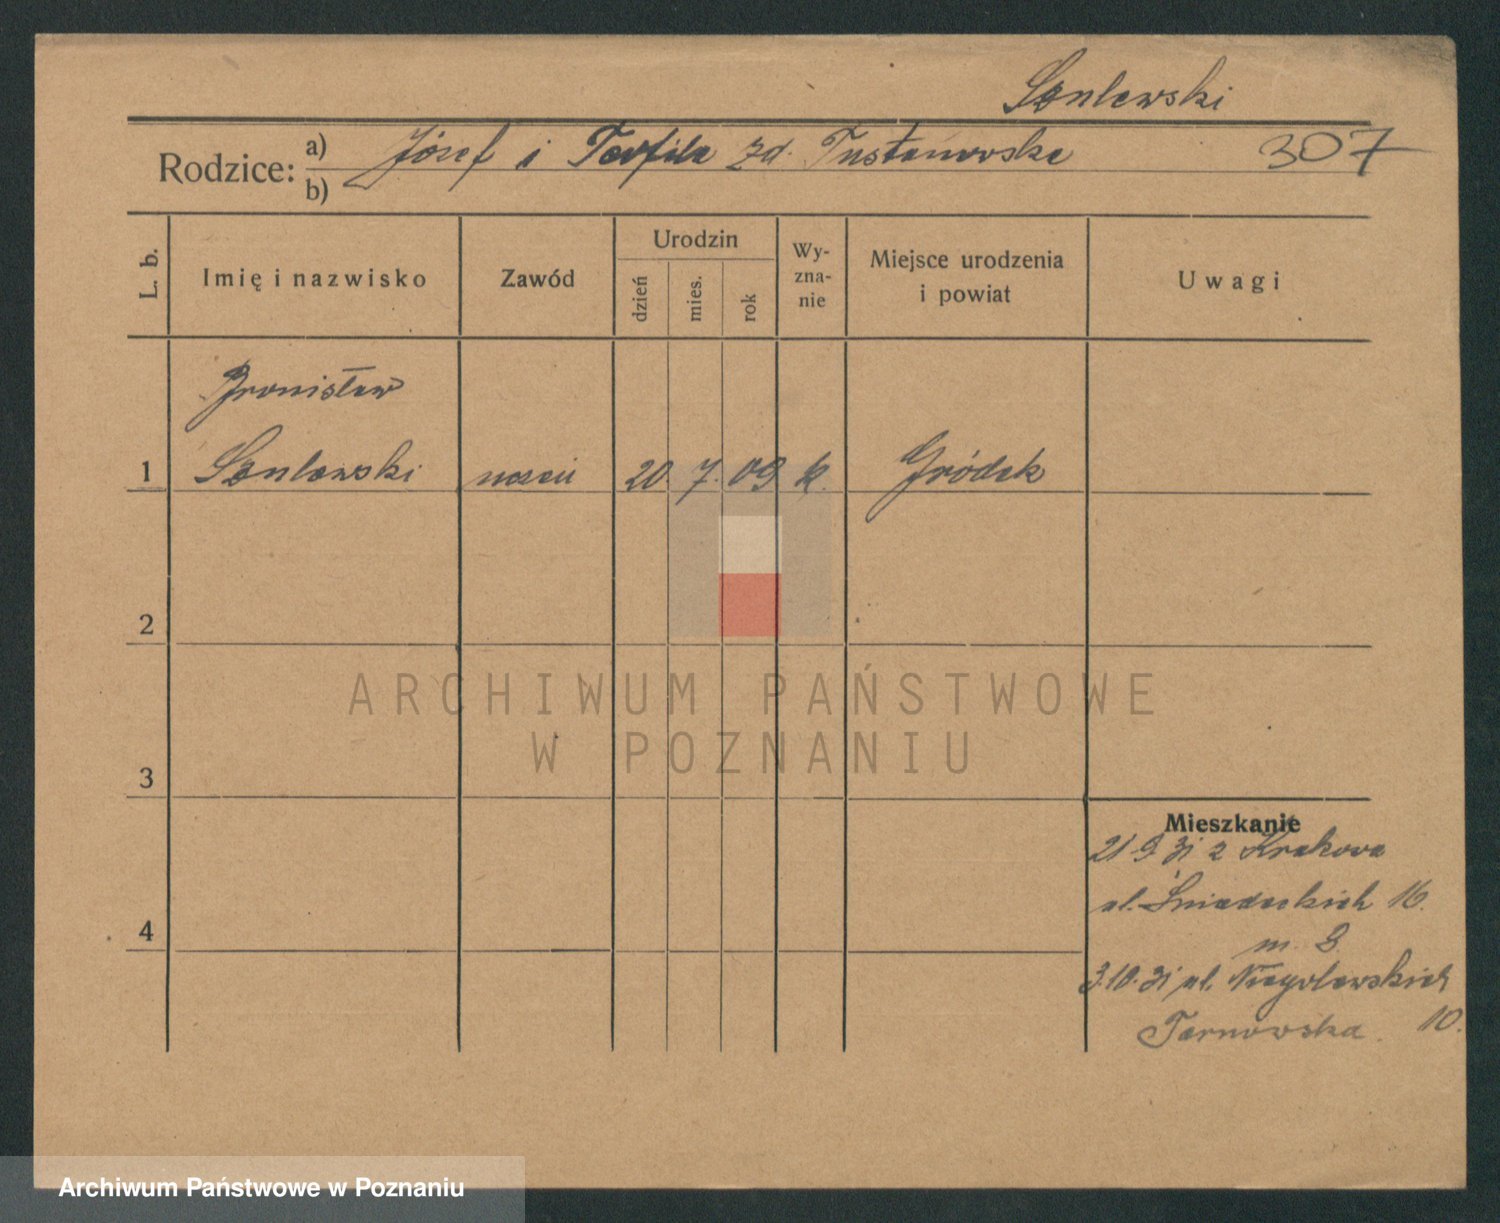 Szulewski
Rodzice: a) Józef i Teofila zd. Tustanowska 307
b)
L. b.
Imię i nazwisko
Zawód
Urodzin
dzień
mies.
rok
Wy-
zna-
nie
Miejsce urodzenia
i powiat
Uwagi
Bronisław
1 Szulewski uczeń 20. 7. 09 k. Gródek
2
ARCHIWUM PAŃSTWOWE
W POZNANIU
3
Mieszkanie
21 9 31 z Krakowa
ul. Śniadeckich 16.
4
m. 8.
3.10.31 ul. Niegolewskich
10.
Tarnowska.
Archiwum Państwowe w Poznaniu